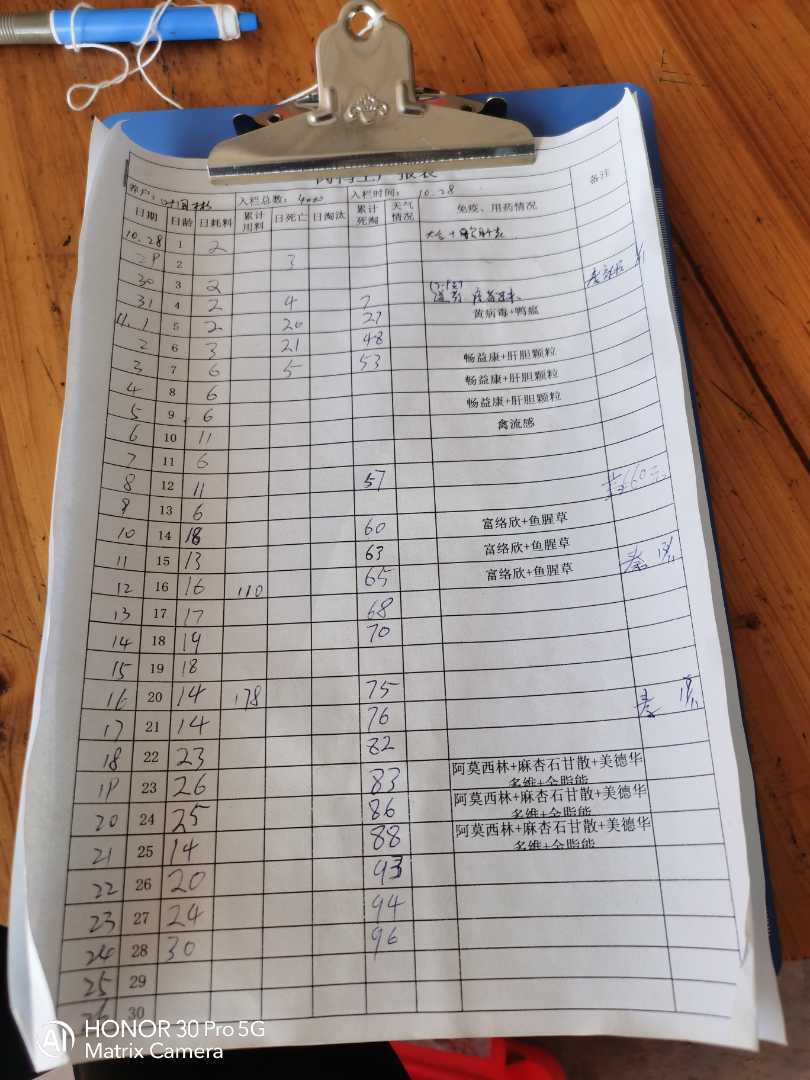 养户： 入栏总数：4000 入栏时间： 10.28 备注
日期 日龄 日耗料 累计用料 日死亡 日淘汰 累计死淘 天气情况 免疫、用药情况
10.28 1 2
29 2 3
30 3 2
31 4 2 4 7
11.1 5 2 20 27 黄病毒+鸭瘟
2 6 3 21 48
3 7 6 5 53 畅益康+肝胆颗粒
4 8 6 畅益康+肝胆颗粒
5 9 6 畅益康+肝胆颗粒
6 10 11 禽流感
7 11 6
8 12 11 57
9 13 6
10 14 18 60 富络欣+鱼腥草
11 15 13 63 富络欣+鱼腥草
12 16 16 110 65 富络欣+鱼腥草
13 17 17 68
14 18 19 70
15 19 18
16 20 14 178 75
17 21 14 76
18 22 23 82
19 23 26 83 阿莫西林+麻杏石甘散+美德华多维+全脂能
20 24 25 86 阿莫西林+麻杏石甘散+美德华多维+全脂能
21 25 14 88 阿莫西林+麻杏石甘散+美德华多维+全脂能
22 26 20 93
23 27 24 94
24 28 30 96
25 29
26 30
AI HONOR 30 Pro 5G
Matrix Camera